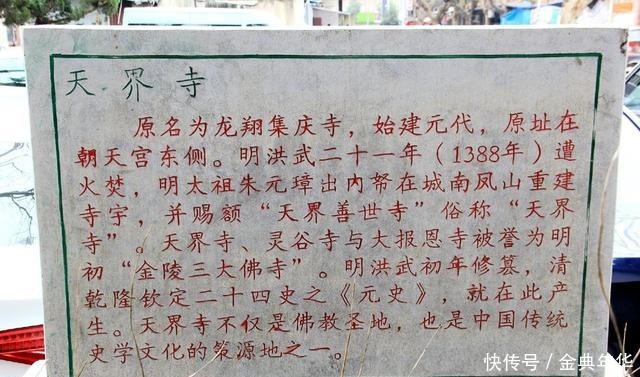 天界寺
原名为龙翔集庆寺，始建元代，原址在
朝天宫东侧。明洪武二十一年（1388年）遭
火焚，明太祖朱元璋出内帑在城南凤山重建
寺宇，并赐额“天界善世寺”俗称“天界
寺”。天界寺、灵谷寺与大报恩寺被誉为明
初“金陵三大佛寺”。明洪武初年修纂，清
乾隆钦定二十四史之《元史》，就在此产
生。天界寺不仅是佛教圣地，也是中国传统
史学文化的策源地之一。
快传号／金典年华